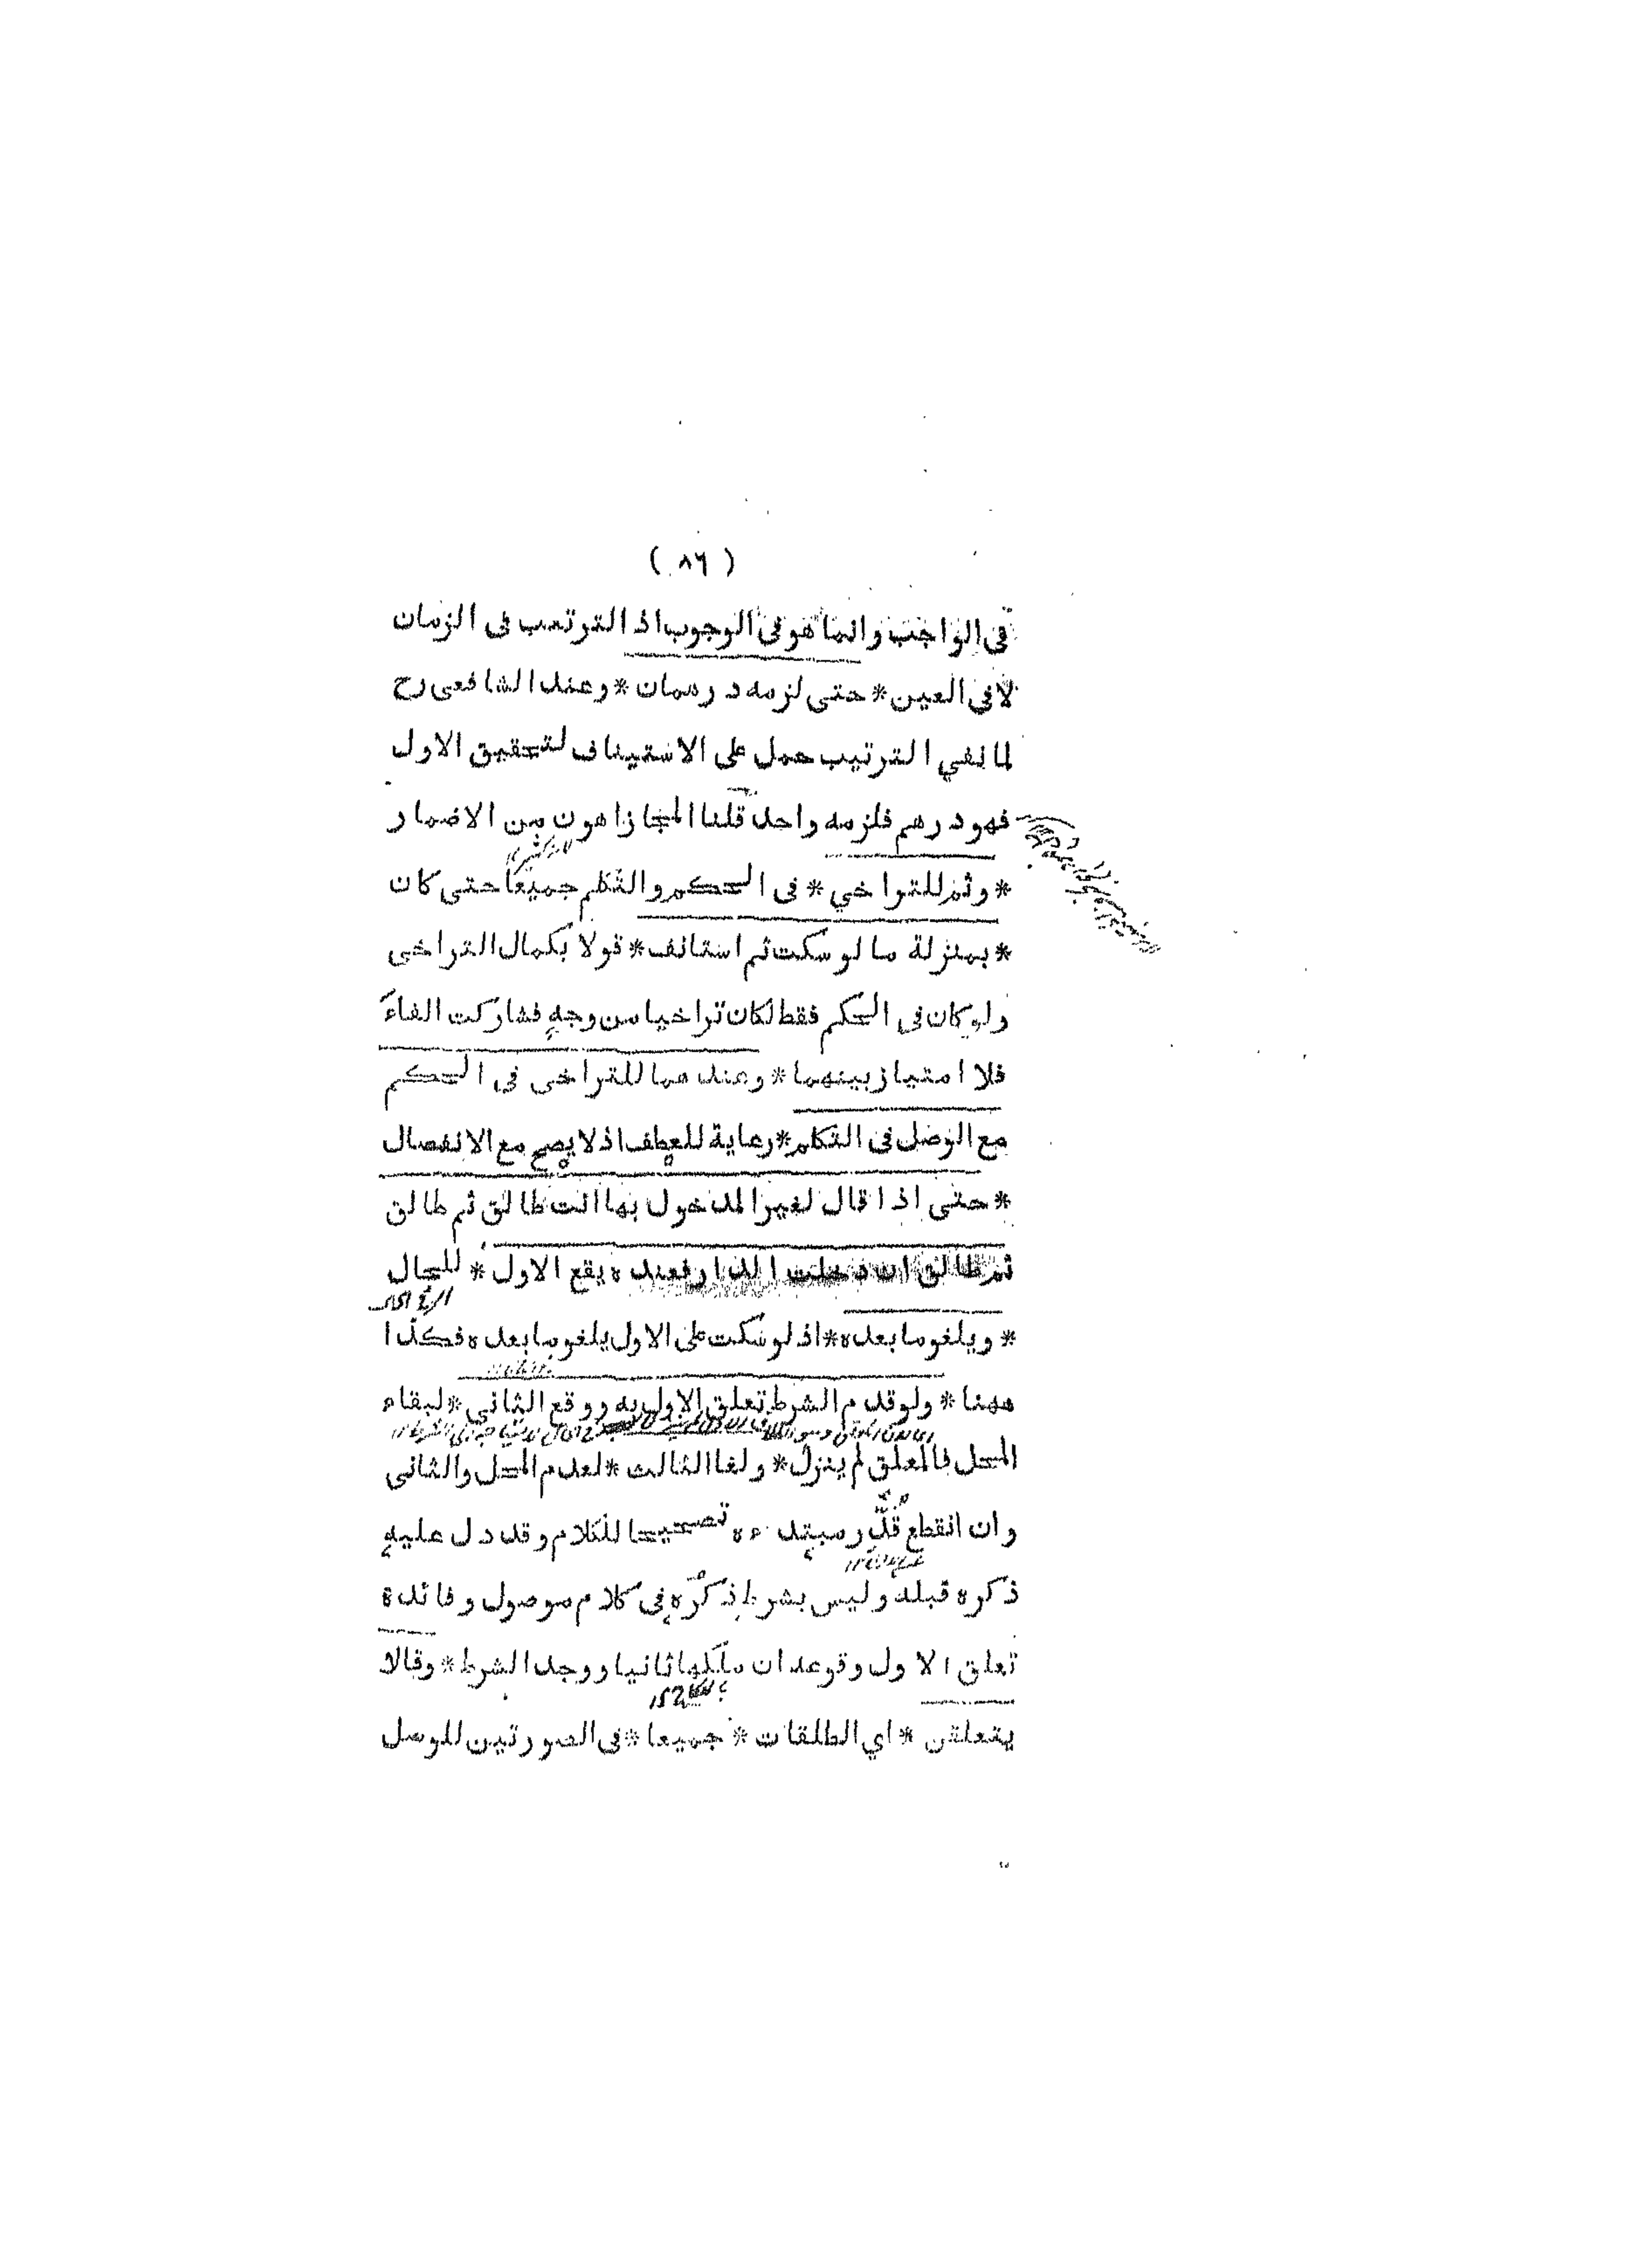 ( ٨٦ )
فى الواجب وانما هو فى الوجوب اذ الترتيب فى الزمان
لا فى العين * حتى لزمه درهمان * وعند الشافعى رح
لما نفي الترتيب حمل على الاستيناف لتحقيق الاول
فهو درهم فلزمه واحد قلنا المجاز اهون من الاضمار
* وثم للتراخي * فى الحكم والتكلم جميعا حتى كان
* بمنزلة ما لو سكت ثم استانف * قولا بكمال التراخى
ولو كان فى الحكم فقط لكان تراخيا من وجه فشاركت الفاء
فلا امتياز بينهما * وعندهما للتراخى فى الحكم
مع الوصل فى التكلم * رعاية للعطف اذ لا يصح مع الانفصال
* حتى اذا قال لغير المدخول بها انت طالق ثم طالق
ثم طالق ان دخلت الدار فعنده يقع الاول * للحال
* ويلغو ما بعده * اذ لو سكت على الاول يلغو ما بعده فكذا
ههنا * ولو قدم الشرط تعلق الاول به ووقع الثاني * لبقاء
المحل فالمعلق لم ينزل * ولغا الثالث * لعدم المحل والثانى
وان انقطع قدر مبتدءه تصحيحا للكلام وقد دل عليه
ذكره قبله وليس بشرط ذكره فى كلام موصول وفائدة
تعلق الاول وقوعه ان ملكها ثانيا ووجد الشرط * وقالا
يتعلقن * اي الطلقات * جميعا * فى الصورتين للوصل